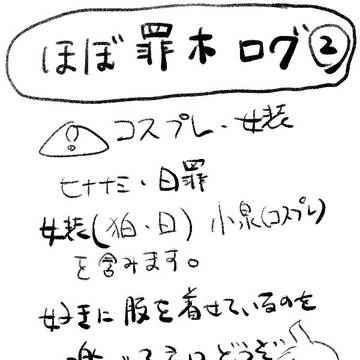 ほぼ罪木ログ②
コスプレ・女装
ヒナナミ・日罪
女装(狛・日) 小泉(コスプレ)
を含みます。
好きに服を着せているのを